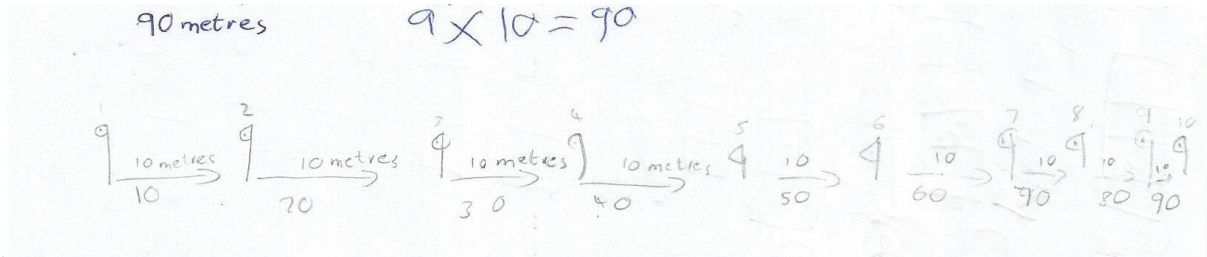 90 metres 9 × 10 = 90
1 2 3 4 5 6 7 8 9 10
10 metres 10 metres 10 metres 10 metres 10 10 10 10 10
10 20 30 40 50 60 70 80 90